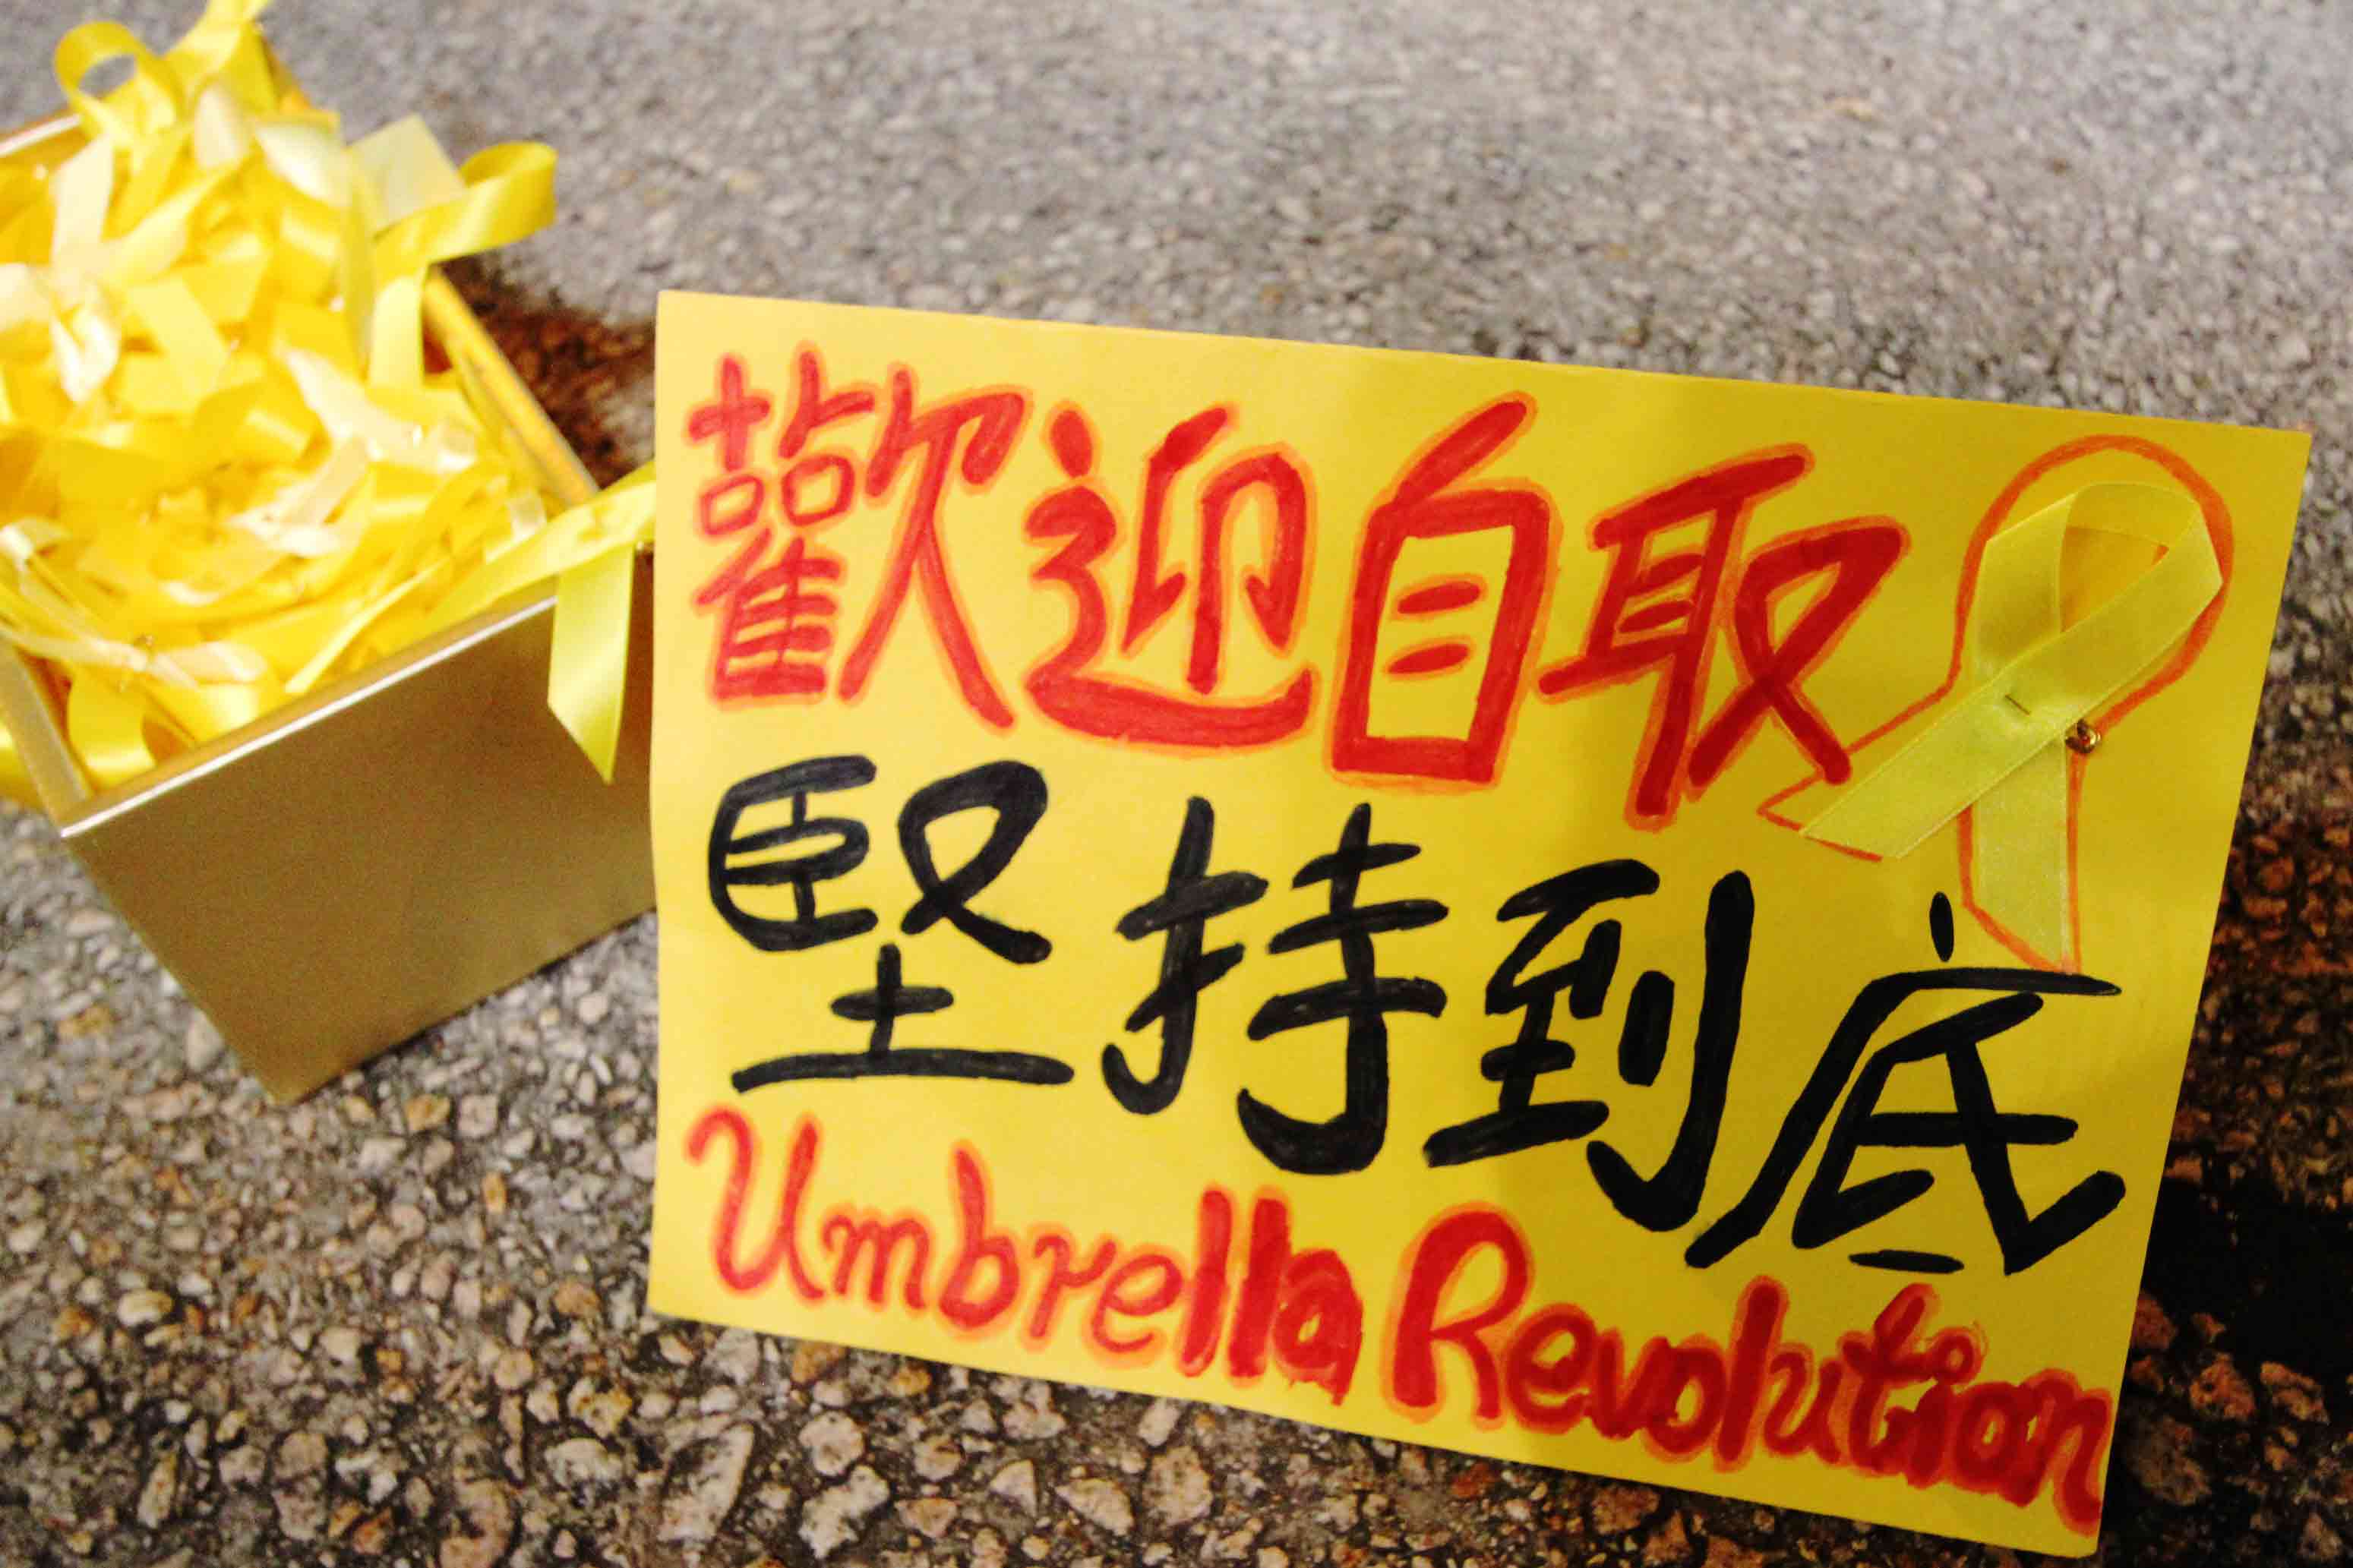 歡迎自取
堅持到底
Umbrella Revolution